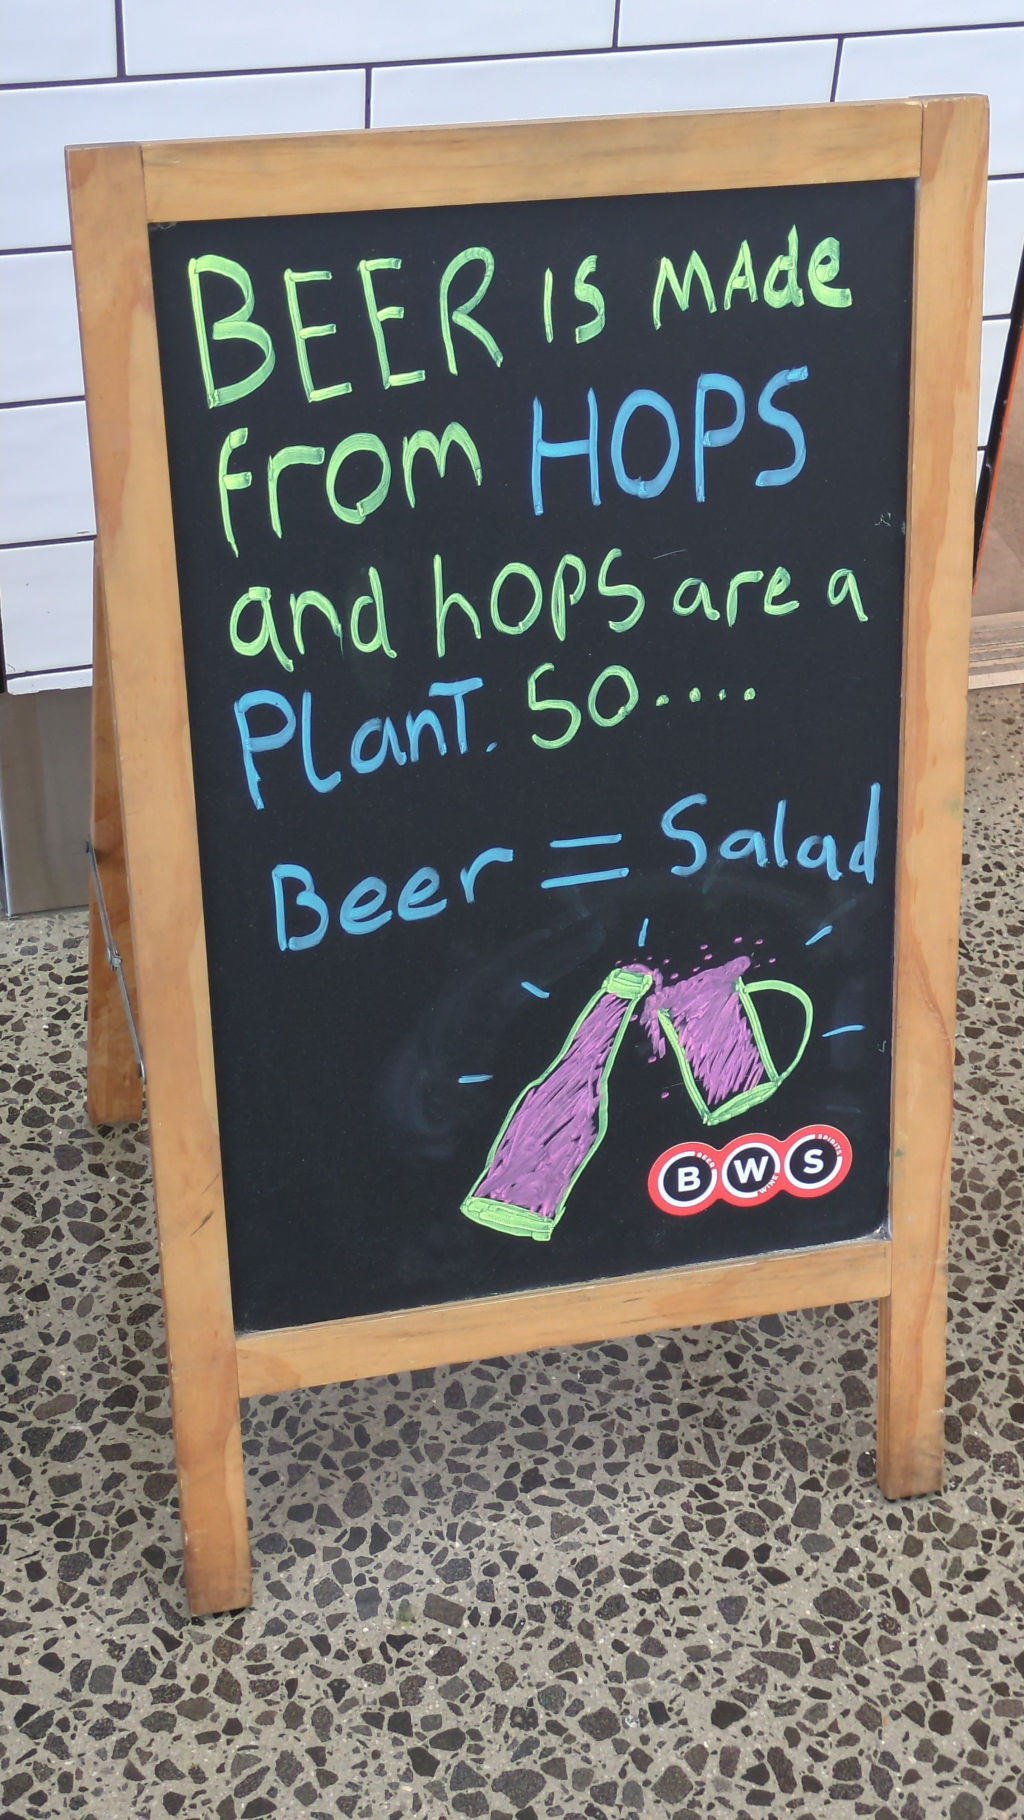 BEER is MAde
from HOPS
and hOPS are a
PLanT. SO....
Beer = Salad
B BEER W WINE S SPIRITS